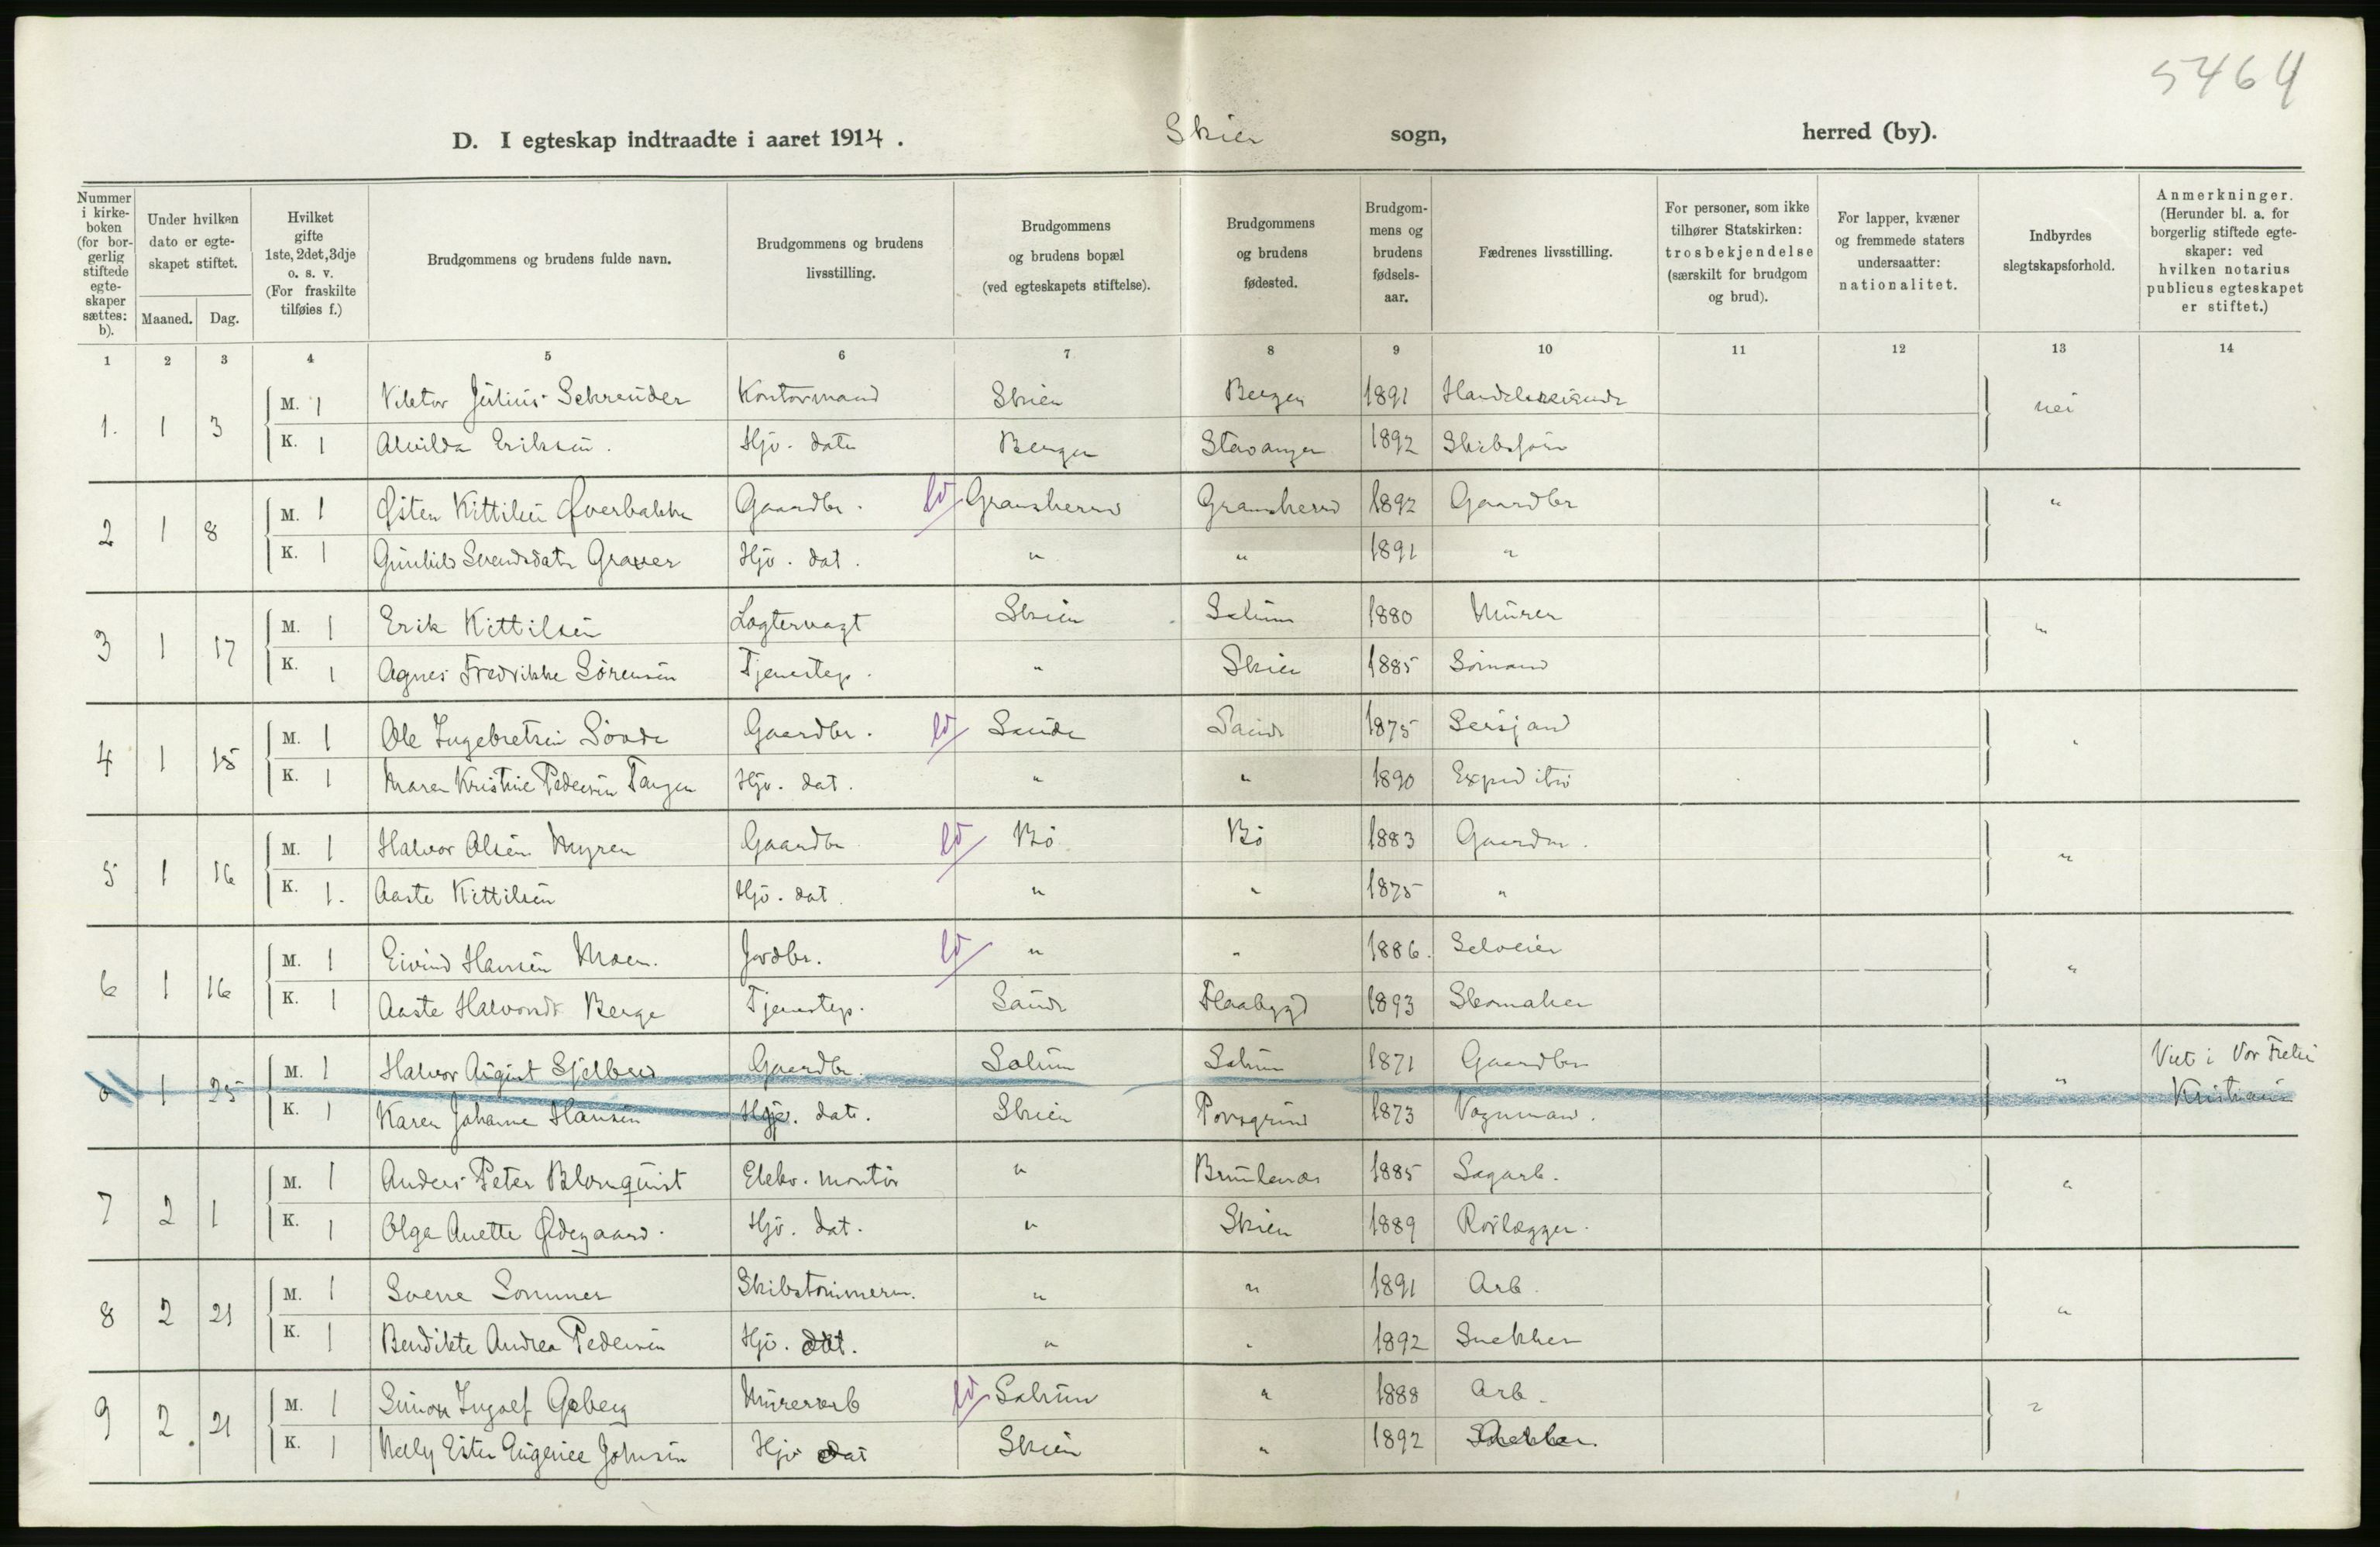 5464
D. I egteskap indtraadte i aaret 1914. Skien sogn, herred (by).
Nummer i kirke- boken (for bor- gerlig stiftede egte- skaper sættes: b).
Under hvilken dato er egte- skapet stiftet.
Maaned. Dag.
Hvilket gifte 1ste, 2det, 3dje o. s. v. (For fraskilte tilføies f.)
Brudgommens og brudens fulde navn.
Brudgommens og brudens livsstilling.
Brudgommens og brudens bopæl (ved egteskapets stiftelse).
Brudgommens og brudens fødested.
Brudgom- mens og brudens fødsels- aar.
Fædrenes livsstilling.
For personer, som ikke tilhører Statskirken: trosbekjendelse (særskilt for brudgom og brud).
For lapper, kvæner og fremmede staters undersaatter: nationalitet.
Indbyrdes slegtskapsforhold.
Anmerkninger. (Herunder bl. a. for borgerlig stiftede egte- skaper: ved hvilken notarius publicus egteskapet er stiftet.)
1 2 3 4 5 6 7 8 9 10 11 12 13 14
1. 1 3 M. 1 Viktor Julius Schreuder Kontormand Skien Bergen 1891 nei
K. 1 Alvilda Eriksen. Hjv. datr Bergen Stavanger 1892
2 1 8 M. 1 Østen Kittilsen Øverbakke Gaardbr. Gransherred Gransherred 1892 Gaardbr "
K. 1 Gunhild Svendsdatr Graver Hjv. dat. " " 1891 "
3 1 17 M. 1 Erik Kittilsen Logtervagt Skien Solum 1880 Murer "
K. 1 Agnes Fredrikke Sørensen Tjenestep. " Skien 1885 Sømand
4 1 15 M. 1 Ole Ingebretsen Gaardbr. Saude Saude 1875 Sersjant "
K. 1 Maren Kristine Pedersen Tangen Hjv. dat. " " 1890
5 1 16 M. 1 Halvor Olsen Myren Gaardbr Bø Bø 1883 Gaardbr. "
K. 1. Aaste Kittilsen Hjv. dat. " " 1875 "
6 1 16 M. 1 Eivind Hansen Moen. Jordbr. " " 1886. Selveier "
K. 1 Aaste Halvorsdr Berge Tjenestep. Saude Flaabygd 1893 Skomaker
1 25 M. 1 Halvor August Gaardbr. Solum Solum 1871 Gaardbr " Viet i Vor Frelser
K. 1 Karen Johanne Hansen Hjv. datr. Skien Porsgrund 1873 Vognmand. Kristiania
7 2 1 M. 1 Anders Peter Blomquist Elektr. montør " Brunlanæs 1885 Sagarb. "
K. 1 Olga Anette Ødegaard. Hjv. dat. " Skien 1889 Rørlægger.
8 2 21 M. 1 Sverre Sommer Skibstømmerm. " " 1891 Arb. "
K. 1 Bendikte Andrea Pedersen Hjv. dat. " " 1892 Snekker
9 2. 21 M. 1 Simon Ingolf Murerarb Solum " 1888 Arb. "
K. 1 Nelly Ester Eugenie Johnsen Hjv dat Skien " 1892 Snekker.